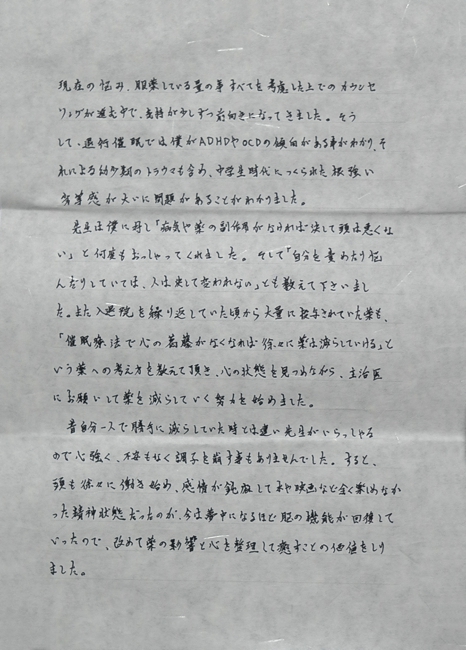 現在の悩み、服薬している量の事すべてを考慮した上でのカウンセ
リングが進む中で、気持が少しずつ前向きになってきました。そう
して、退行催眠では僕がADHDやOCDの傾向がある事がわかり、そ
れによる幼少期のトラウマも含め、中学生時代につくられた根強い
劣等感が大いに問題があることがわかりました。
先生は僕に対し「病気や薬の副作用がなければ決して頭は悪くな
い」と何度もおっしゃってくれました。そして「自分を責めたり悩
んだりしていては、人は決して変われない」とも教えて下さいまし
た。また入退院を繰り返していた頃から大量に投与されていた薬も、
「催眠療法で心の葛藤がなくなれば徐々に薬は減らしていける」と
いう薬への考え方を教えて頂き、心の状態を見つめながら、主治医
にお願いして薬を減らしていく努力を始めました。
昔自分一人で勝手に減らしていた時とは違い先生がいらっしゃる
ので心強く、不安もなく調子を崩す事もありませんでした。すると、
頭も徐々に働き始め、感情が鈍麻して本や映画など全く楽しめなか
った精神状態だったのが、今は夢中になるほど脳の機能が回復して
いったので、改めて薬の影響と心を整理して癒すことの価値をしり
ました。